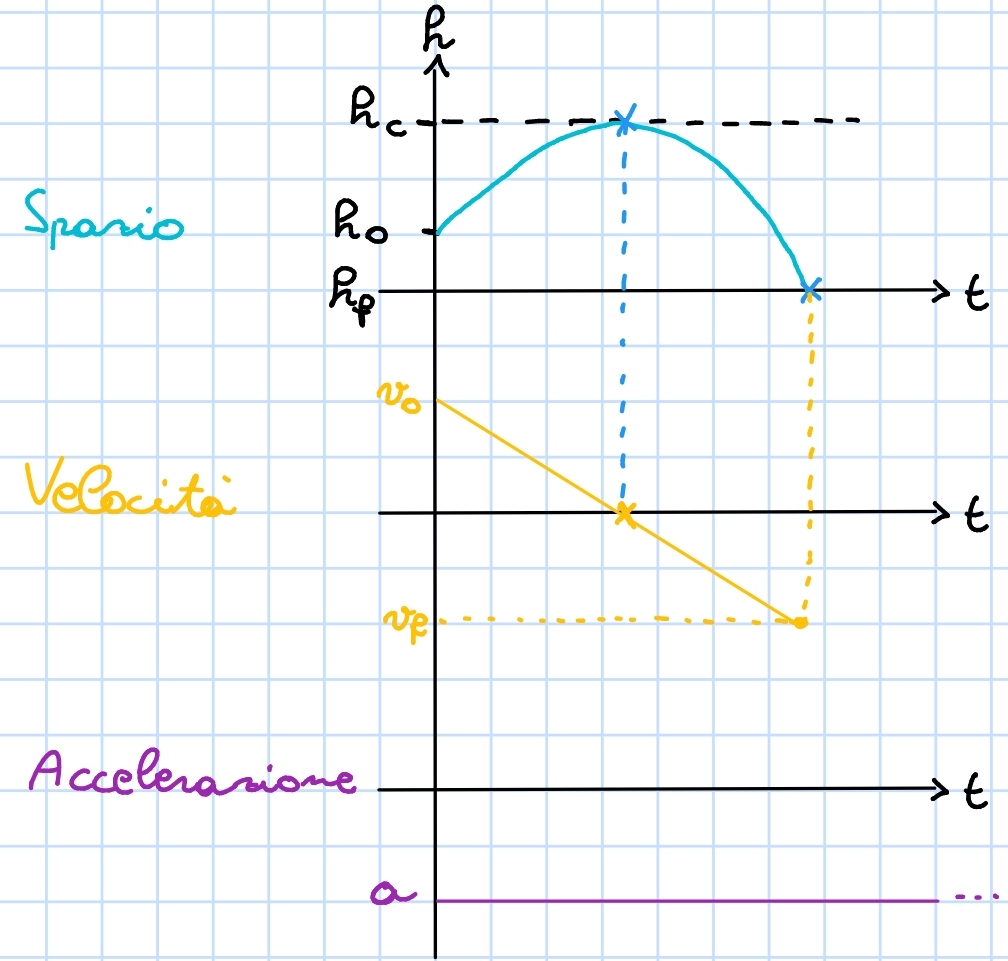 h
h_c
Spazio
h_0
h_f
t
v_0
Velocità
t
v_f
Accelerazione
t
a
...